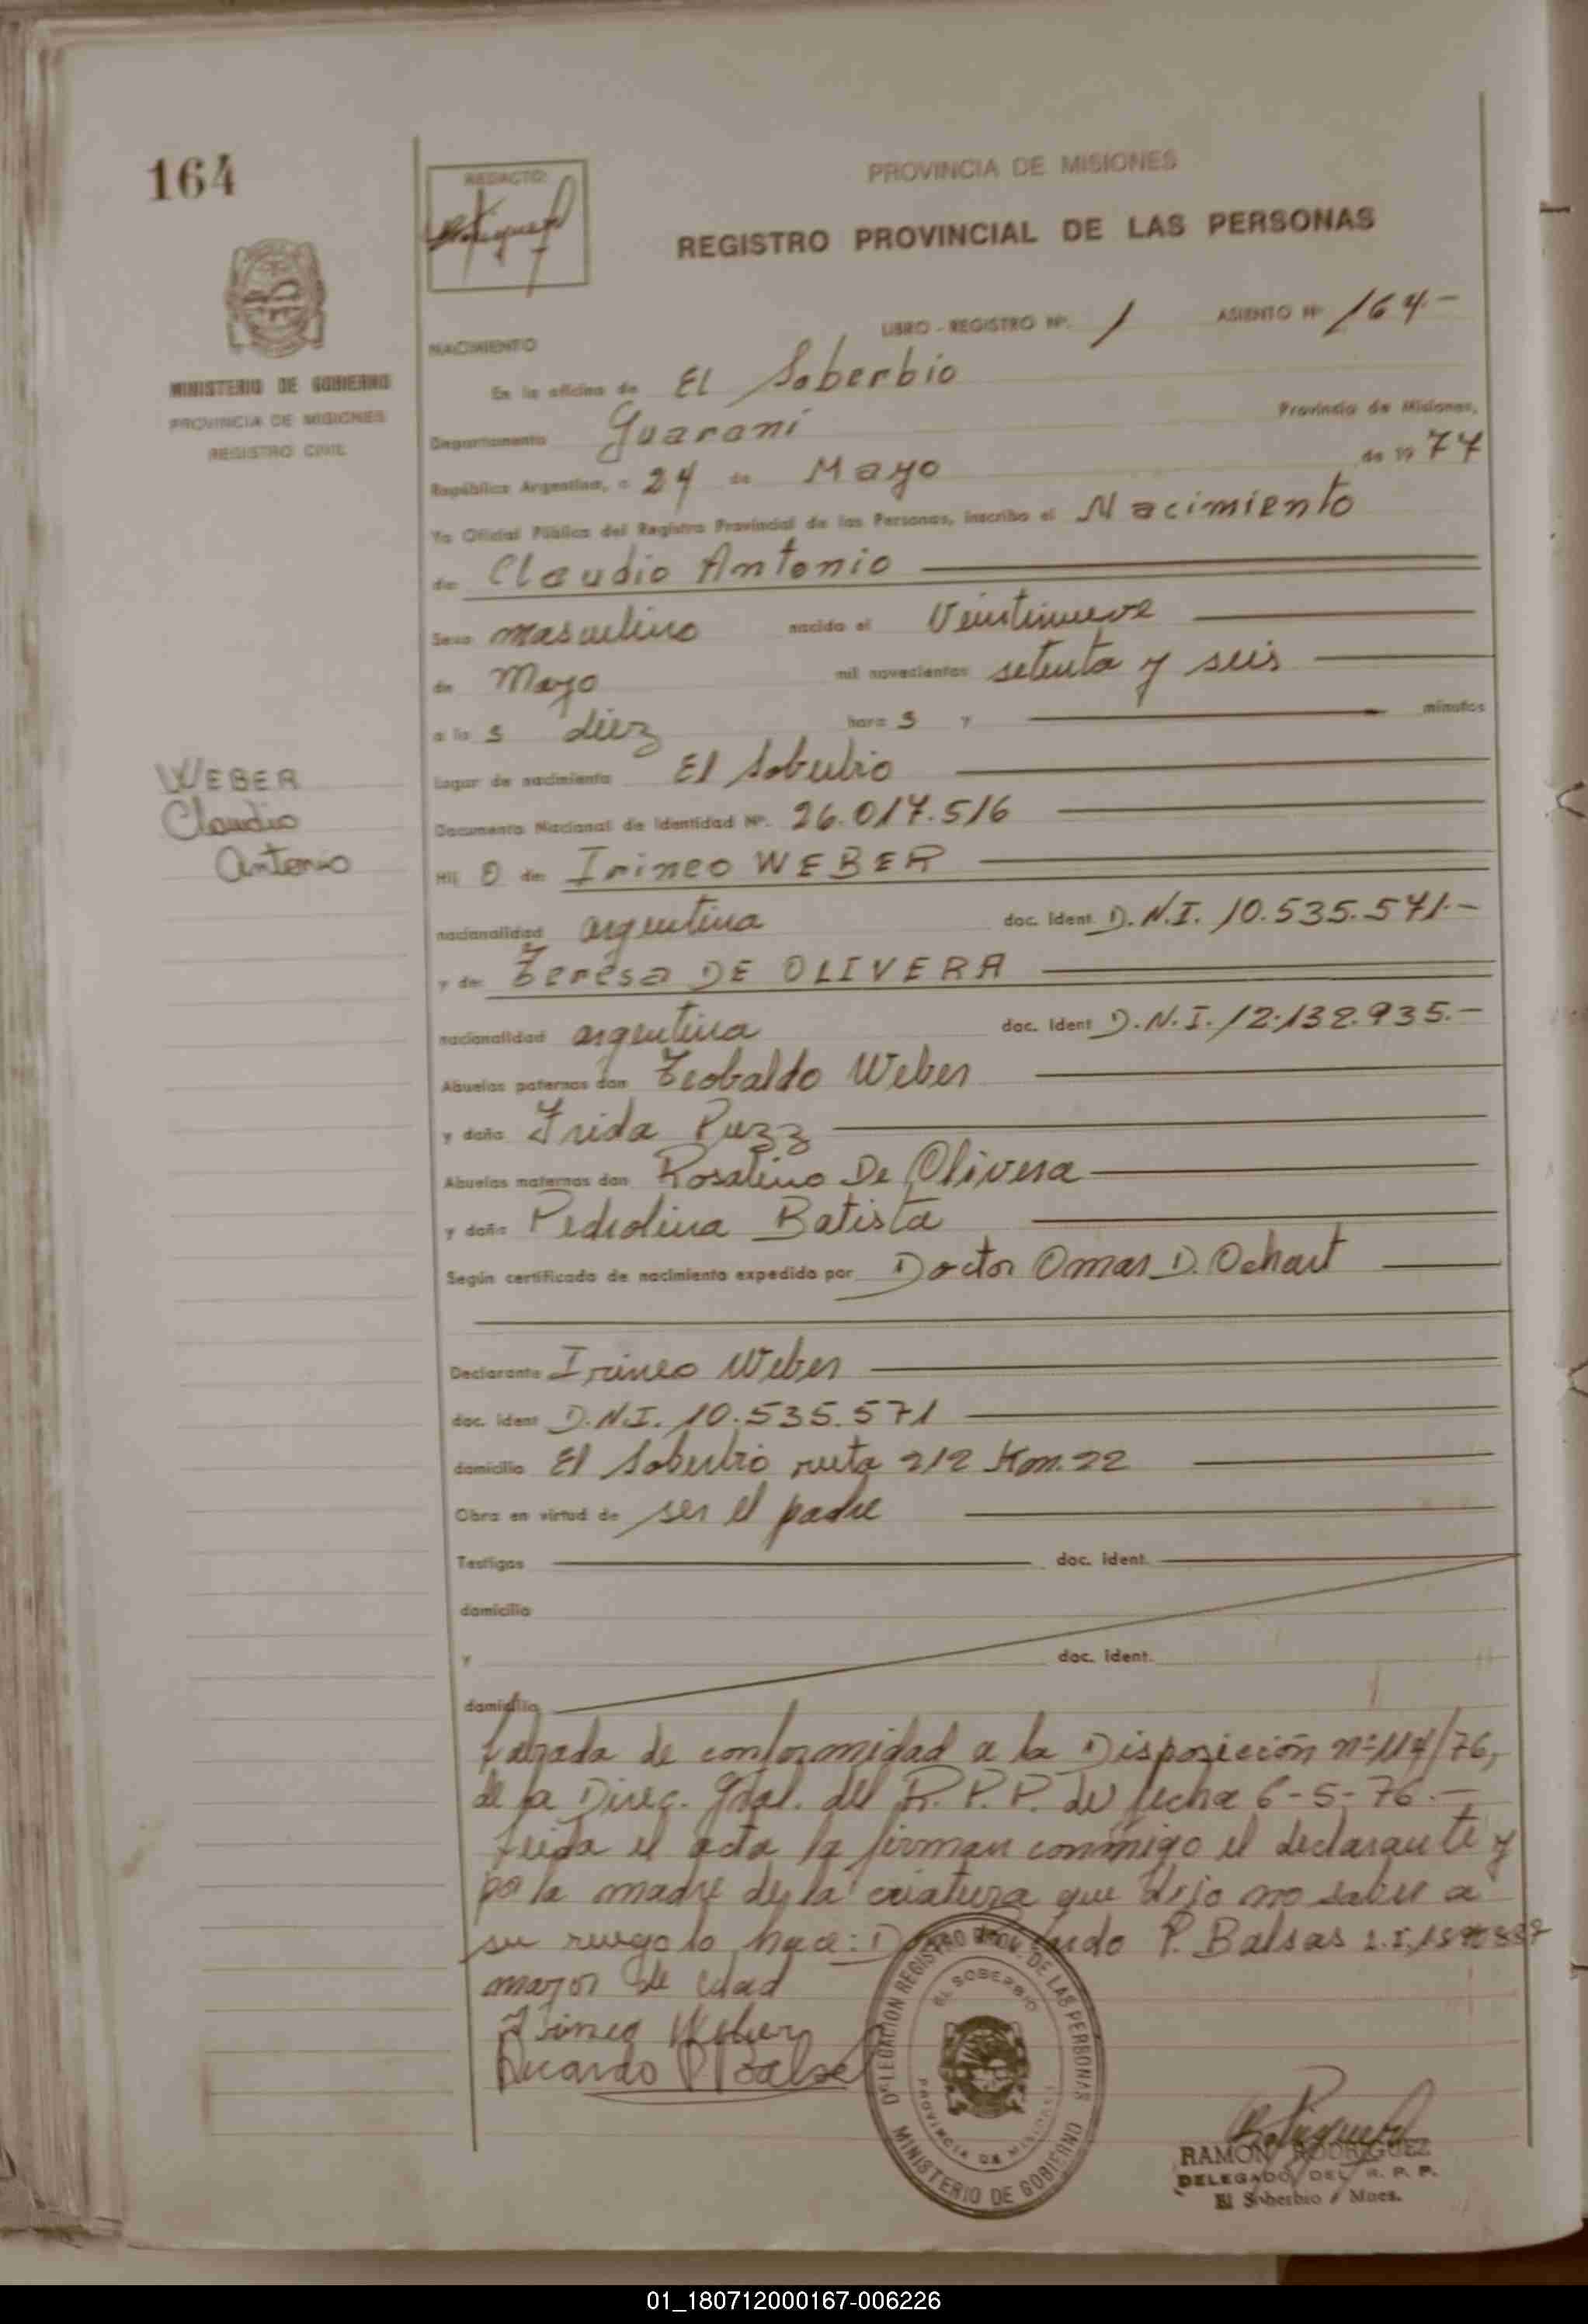 164
REDACTO:
PROVINCIA DE MISIONES
REGISTRO PROVINCIAL DE LAS PERSONAS
MINISTERIO DE GOBIERNO
PROVINCIA DE MISIONES
REGISTRO CIVIL
LIBRO - REGISTRO Nº. 1 ASIENTO Nº 164.-
NACIMIENTO
En la oficina de El Soberbio
Departamento Guaraní Provincia de Misiones,
República Argentina, a 24 de Mayo de 19 77
Yo Oficial Público del Registro Provincial de las Personas, inscribo el Nacimiento
de Claudio Antonio
Sexo masculino nacido el Veintinueve
de Mayo mil novecientos setenta y seis
a las diez horas y minutos
Lugar de nacimiento El Soberbio
Documento Nacional de Identidad Nº. 26.017.516
WEBER
Claudio
Antonio
Hij o de Irineo WEBER
nacionalidad argentina doc. Ident D.N.I. 10.535.571.-
y de Teresa DE OLIVERA
nacionalidad argentina doc. Ident D.N.I. 12.132.935.-
Abuelos paternos don Teobaldo Weber
y doña Frida Puzz
Abuelos maternos don Rosalino De Olivera
y doña Pedrolina Batista
Según certificado de nacimiento expedido por Doctor Omar D. Ochart
Declarante Irineo Weber
doc. ident D.N.I. 10.535.571
domicilio El Soberbio ruta 212 Km. 22
Obra en virtud de ser el padre
Testigos doc. ident.
domicilio
y doc. ident.
domicilio
Labrada de conformidad a la Disposición nº 117/76,
de la Direc. Gral. del R.P.P. de fecha 6-5-76.-
Leida el acta la firman conmigo el declarante y
por la madre de la criatura que dijo no saber a
su ruego lo hace: P. Balsas
mayor de edad
Irineo Weber
Ricardo P. Balsa
DELEGACION REGISTRO PROV. DE LAS PERSONAS
EL SOBERBIO
PROVINCIA DE MISIONES
MINISTERIO DE GOBIERNO
RAMON RODRIGUEZ
DELEGADO DEL R. P. P.
El Soberbio Mnes.
01_180712000167-006226